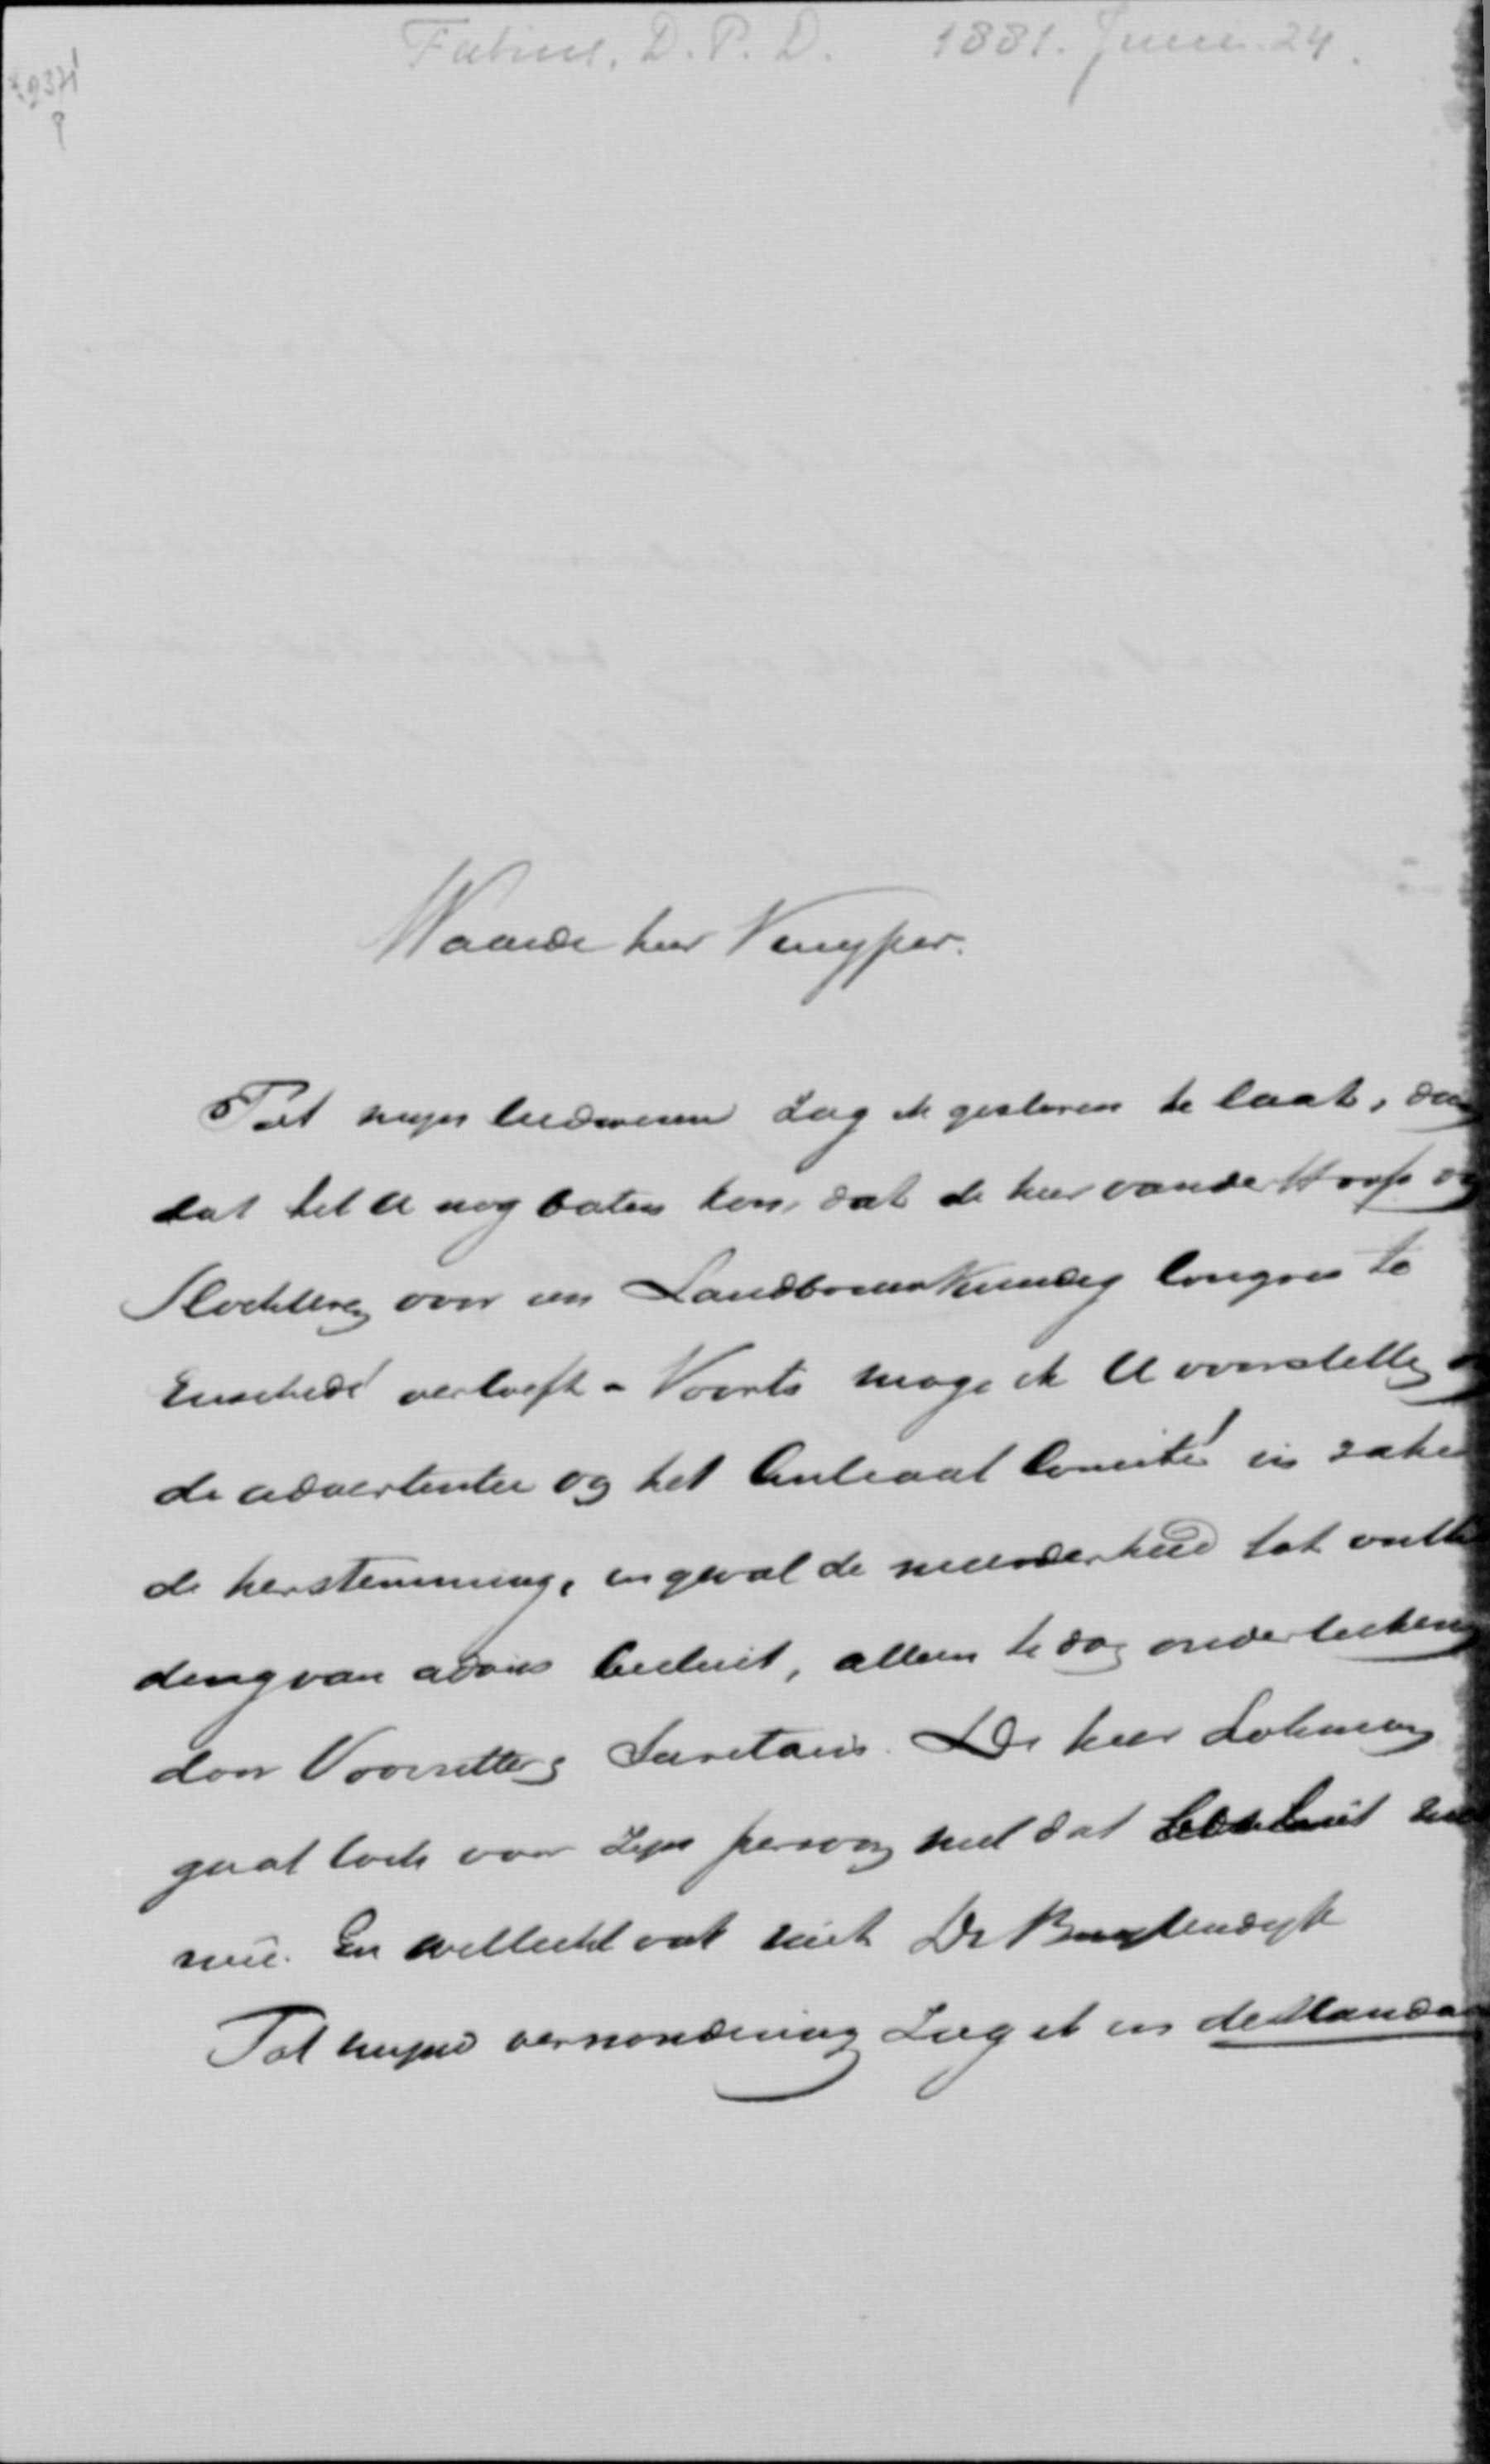 Fabius, D. P. D. 1881. Juni 24.
Waarde heer Kuyper.
Tot mijn leedwezen zag ik gisteren te laat, dan
dat het U nog baten kon, dat de heer van der Hoop
Slochteren over een Landbouwkundig Congres te
Enschedé verblijft - Voorts moge ik U voorstellen
de advertentie van het Centraal Comité in zake
de herstemming, in geval de meerderheid tot onthou
ding van advies besluit, alleen te doen onderteekenen
door Voorzitter en Secretaris. De heer Lohman
gaat toch voor zijn persoon met dat besluit niet
mee. En wellicht ook niet Dr Bruytendijk
Tot mijne verwondering zag ik in de Standaa